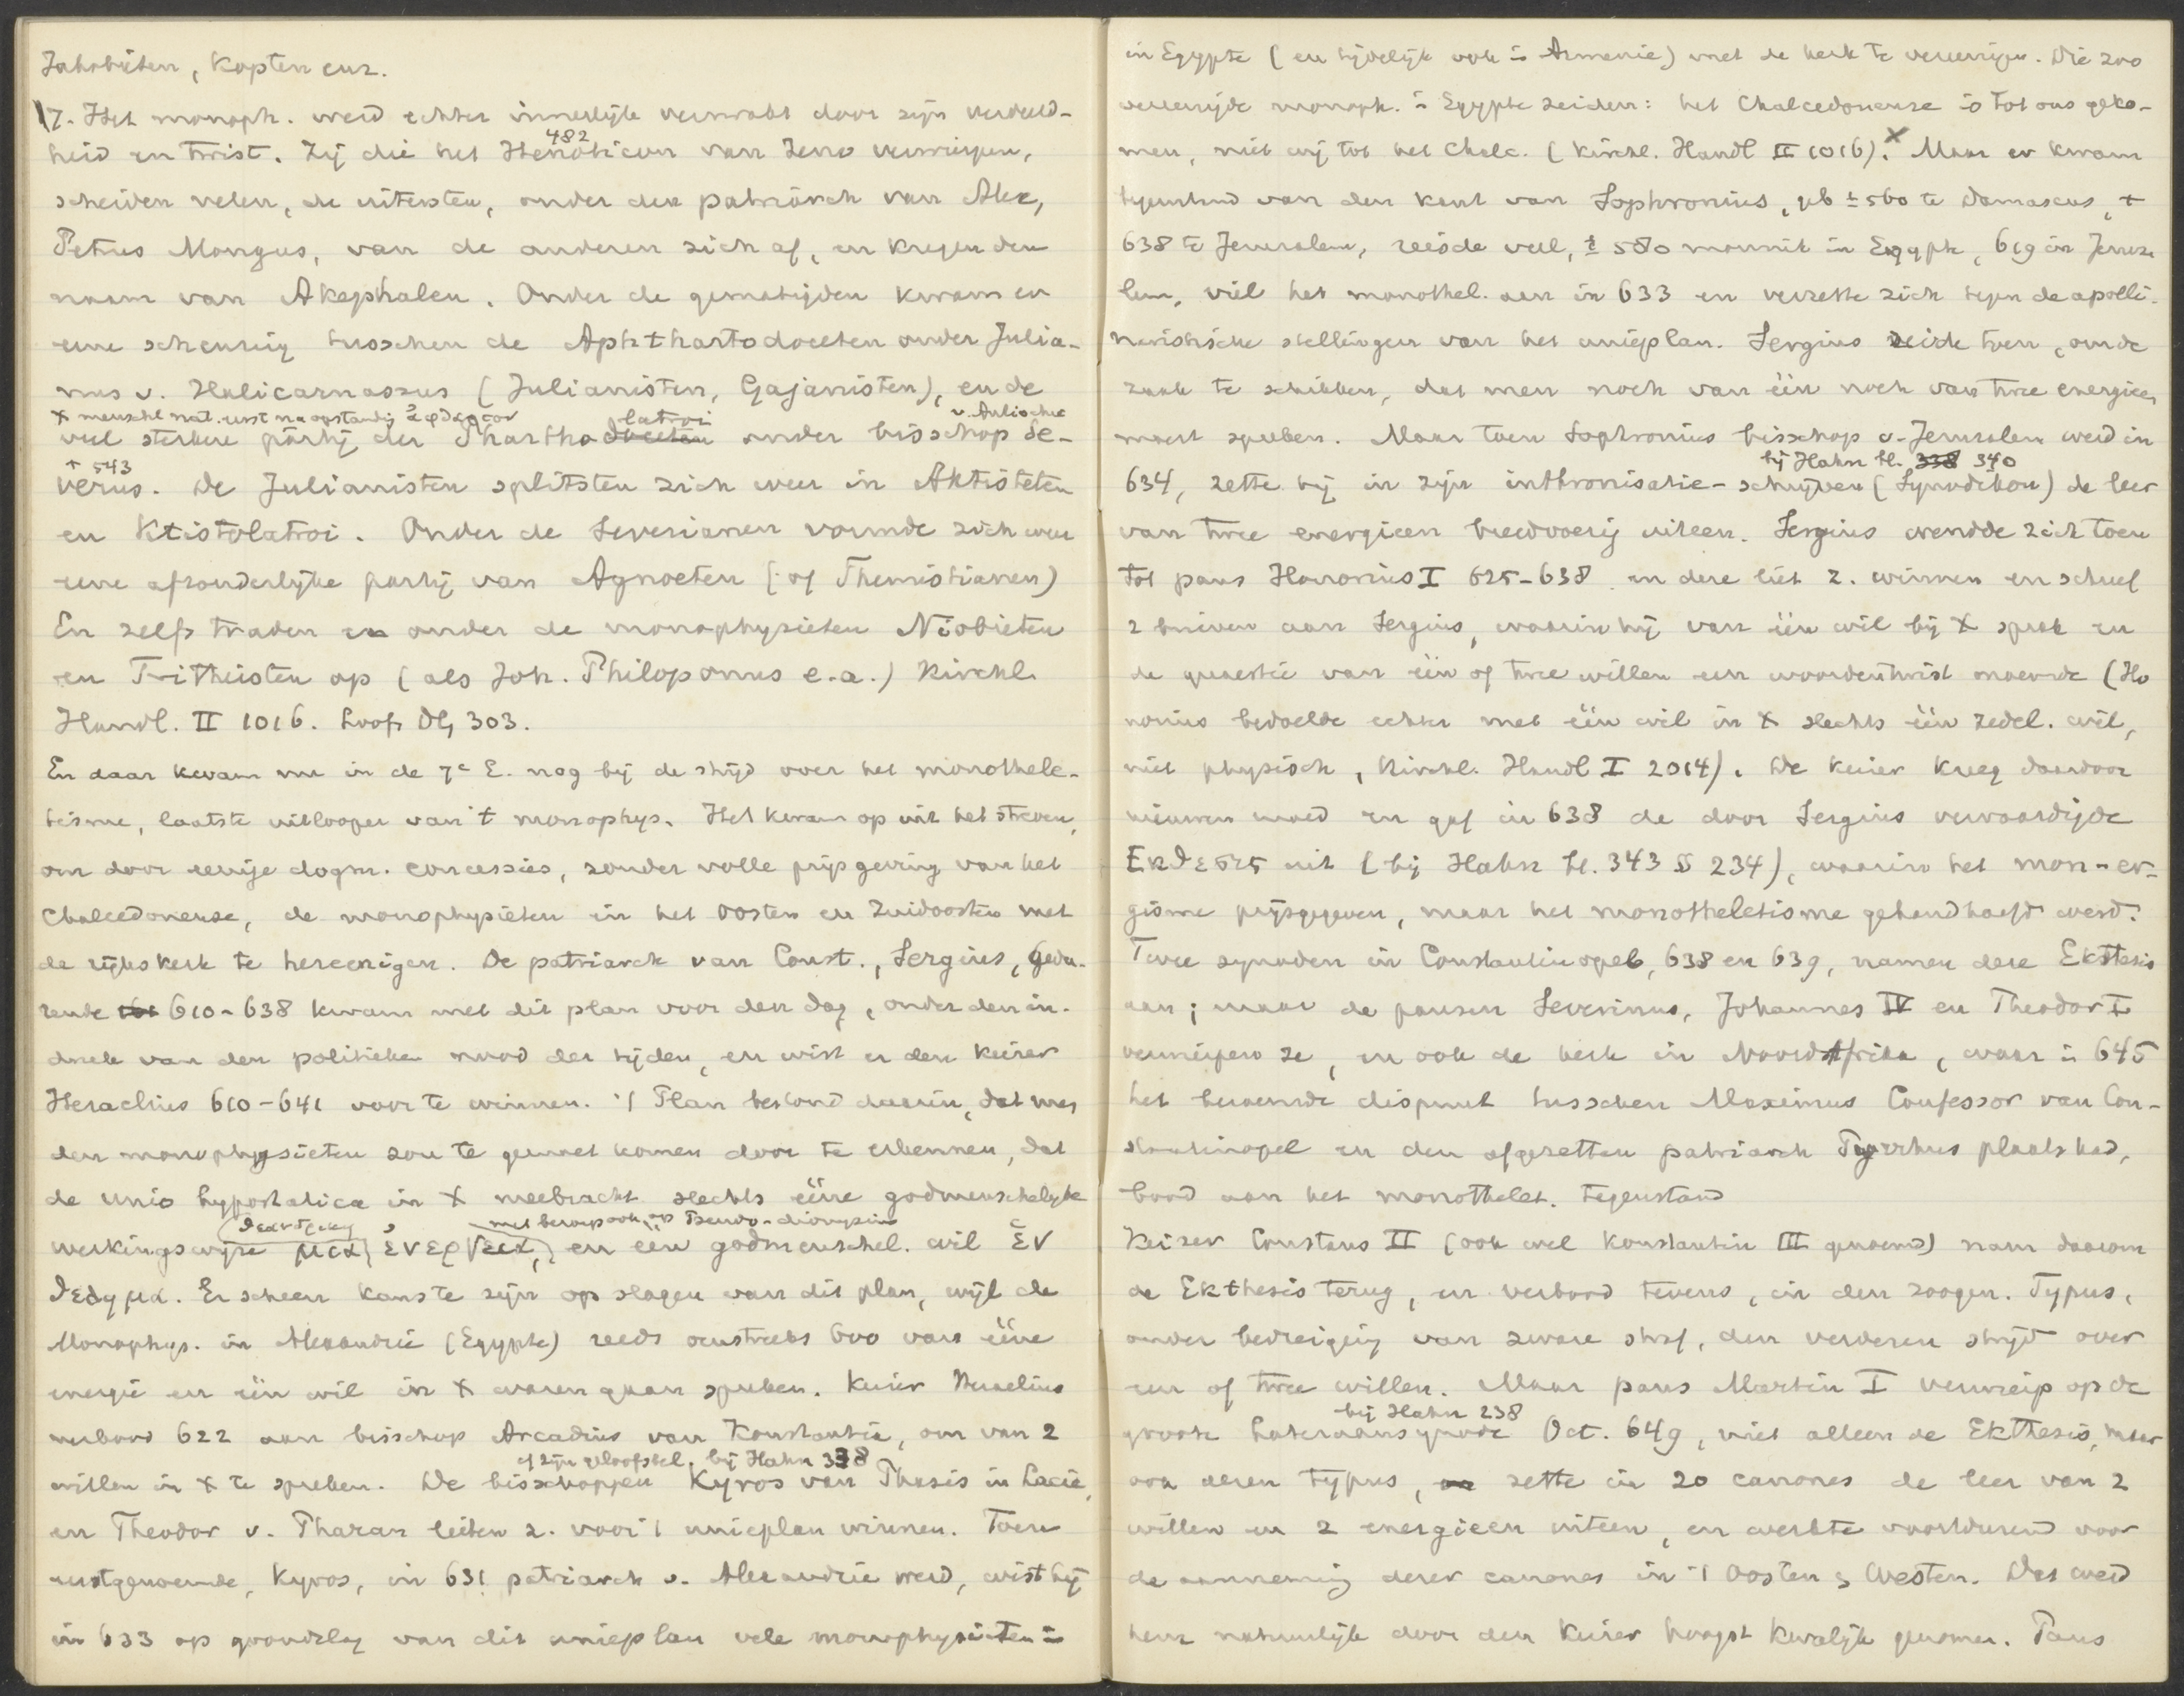 Jakobieten, Kopten enz.
17. Het monoph. werd echter innerlijk verzwakt door zijn verdeeld-
heid en twist. Zij die het Henoticon van Zeno verwierpen,
482
scheiden velen, de uitersten, onder den patriarch van Alex,
Petrus Mongus, van de anderen zich af, en kregen den
naam van Akephalen. Onder de gematigden kwam er
eene scheuring tusschen de Aphthartodoceten onder Julia-
nus v. Halicarnassus (Julianisten, Gajanisten), en de
X menschl. nat. eerst na opstanding ἀφθαρτον latroi v. Antiochië
veel sterkere partij der Phartho doceten onder bisschop Se-
† 543
verus. De Julianisten splitsten zich weer in Aktisteten
en Ktistolatroi. Onder de Severianen vormde zich weer
eene afzonderlijke partij van Agnoeten (of Themistianen)
En zelfs traden en onder de monophysieten Niobieten
en Tritheisten op (als Joh. Philoponus e.a.) Kirchl.
Handl. II 1016. Loofs DG 303.
En daar kwam nu in de 7e E. nog bij de strijd over het monothele-
tisme, laatste uitlooper van 't monophys. Het kwam op uit het streven,
om door eenige dogm. concessies, zonder volle prijsgeving van het
Chalcedonense, de monophysieten in het Oosten en Zuidoosten met
de rijkskerk te hereenigen. De patriarch van Const., Sergius, gedu-
rende tot 610-638 kwam met dit plan voor den dag, onder den in-
druk van den politieken nood der tijden, en wist er den keizer
Heraclius 610-641 voor te winnen. 't Plan bestond daarin, dat men
den monophysieten zou te gemoet komen door te erkennen, dat
de unio hypostatica in X meebracht slechts ééne godmenschelijke
θεανδρικη met beroep ook op Pseudo-Dionysius
werkingswijze μια ἐνεργεια, en een godmenschel. wil ἑν
θελημα. Er scheen kans te zijn op slagen van dit plan, wijl de
Monophys. in Alexandrië (Egypte) reeds omstreeks 600 van ééne
energie en één wil in X waren gaan spreken. Keizer Heraclius
verbood 622 aan bisschop Arcadius van Konstantia, om van 2
cf zijn geloofsbel. bij Hahn 338
willen in X te spreken. De bisschoppen Kyros van Phasis in Lazië,
en Theodor v. Pharan lieten z. voor 't unieplan winnen. Toen
eerstgenoemde, Kyros, in 631 patriarch v. Alexandrië werd, wist hij
in 633 op grondslag van dit unieplan vele monophysieten in
in Egypte (en tijdelijk ook in Armenie) met de kerk te vereenigen. Die zoo
vereenigde monoph. in Egypte zeiden: het Chalcedonense is tot ons geko-
men, niet wij tot het Chalc. (Kirchl. Handl II 1016). X Maar er kwam
tegenstand van den kant van Sophronius, geb ± 560 te Damascus, †
638 te Jeruzalem, reisde veel, ± 580 monnik in Egypte, 619 in Jeruza
lem, viel het monothel. aan in 633 en verzette zich tegen de apolli-
naristische stellingen van het unieplan. Sergius zeide toen, om de
zaak te schikken, dat men noch van één noch van twee energieen
moest spreken. Maar toen Sophronius bisschop v. Jeruzalem werd in
bij Hahn bl. 338 340
634, zette hij in zijn inthronisatie-schrijven (Synodikon) de leer
van twee energieen breedvoerig uiteen. Sergius wendde zich toen
tot paus Honorius I 625-638 en deze liet z. winnen en schreef
2 brieven aan Sergius, waarin hij van één wil bij X sprak en
de quaestie van één of twee willen een woordentwist noemde (Ho
norius bedoelde echter met één wil in X slechts één zedel. wil,
niet physisch, Kirchl. Handl I 2014). De keizer kreeg daardoor
nieuwen moed en gaf in 638 de door Sergius vervaardigde
Εκθεσις uit (bij Hahn bl. 343 § 234), waarin het mon-er-
gisme prijsgegeven, maar het monotheletisme gehandhaafd werd.
Twee synoden in Constantinopel, 638 en 639, namen deze Ekthesis
aan; maar de pausen Severinus, Johannes IV en Theodor I
verwierpen ze, en ook de kerk in Noord Afrika, waar in 645
het beroemde dispuut tusschen Maximus Confessor van Con-
stantinopel en den afgezetten patriarch Pyrrhus plaats had,
bood aan het monothelet. tegenstand
Keizer Constans II (ook wel Konstantin III genoemd) nam daarom
de Ekthesis terug, en verbood tevens, in den zoogen. Typus,
onder bedreiging van zware straf, den verderen strijd over
een of twee willen. Maar paus Martin I verwierp op de
bij Hahn 238
groote Lateraansynode Oct. 649, niet alleen de Ekthesis, maar
ook dezen typus, en zette in 20 canones de leer van 2
willen en 2 energieen uiteen, en werkte voortdurend voor
de aanneming dezer canones in 't Oosten & Westen. Dat werd
hem natuurlijk door den keizer hoogst kwalijk genomen. Paus